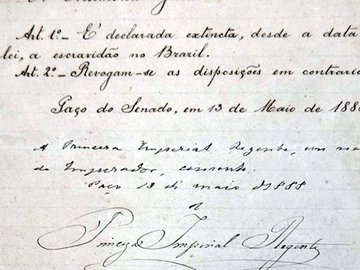 Art. 1º_ E' declarada extincta, desde a data
lei, a escravidão no Brazil.
Art. 2º_ Revogam-se as disposições em contrario
Paço do Senado, em 13 de Maio de 188
A Princeza Imperial Regente, em no
do Imperador, consente.
Paço 13 de maio de 1888
Princeza Imperial Regente